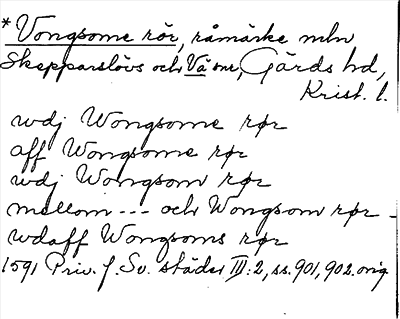 * Vongsome rör, råmärke mln
Skepparslövs och Vä snr, Gärds hd,
Krist. l.
wdj Wongsome rør
aff Wongsome rør
wdj Wongsom rør
mellom --- och Wongsom rør -
wdaff Wongsoms rør
1591 Priv. f. Sv. städer III:2, ss. 901, 902. orig.